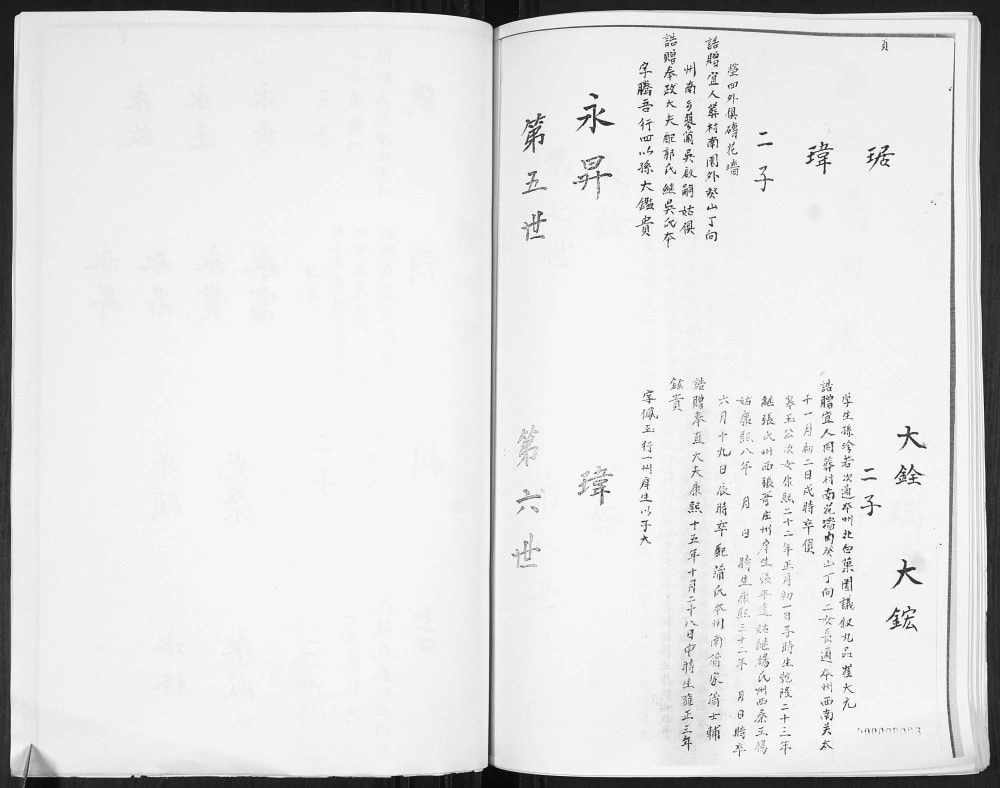 頁
第五世
永昇
字騰吾行四以孫大鑑貴
誥贈奉政大夫配郭氏繼吳氏本
州南乡蓼蘭吳啟嗣姑俱
誥贈宜人葬村南園外癸山丁向
塋四外俱磚花墻
二子
瑋
琚
第六世
瑋
字佩玉行一州庠生以子大
鈜貴
誥贈奉直大夫康熙十五年十月二十八日申時生雍正三年
六月十九日辰時卒配蒲氏本州南蒲家蒲士輔
姑康熙八年 月 日 時生康熙三十二年 月日時卒
繼張氏州西張哥庄州庠生 平遠姑繼楊氏州西秦王惕
寒玉公次女康熙二十二年正月初一日子時生乾隆二十三年
十一月初二日戌時卒俱
誥贈宜人同葬村南花墻南癸山丁向二女長適本州西南关太
学生孫珍若次適本州北白菓園議叙九品崔大允
二子
大銓 大鋐